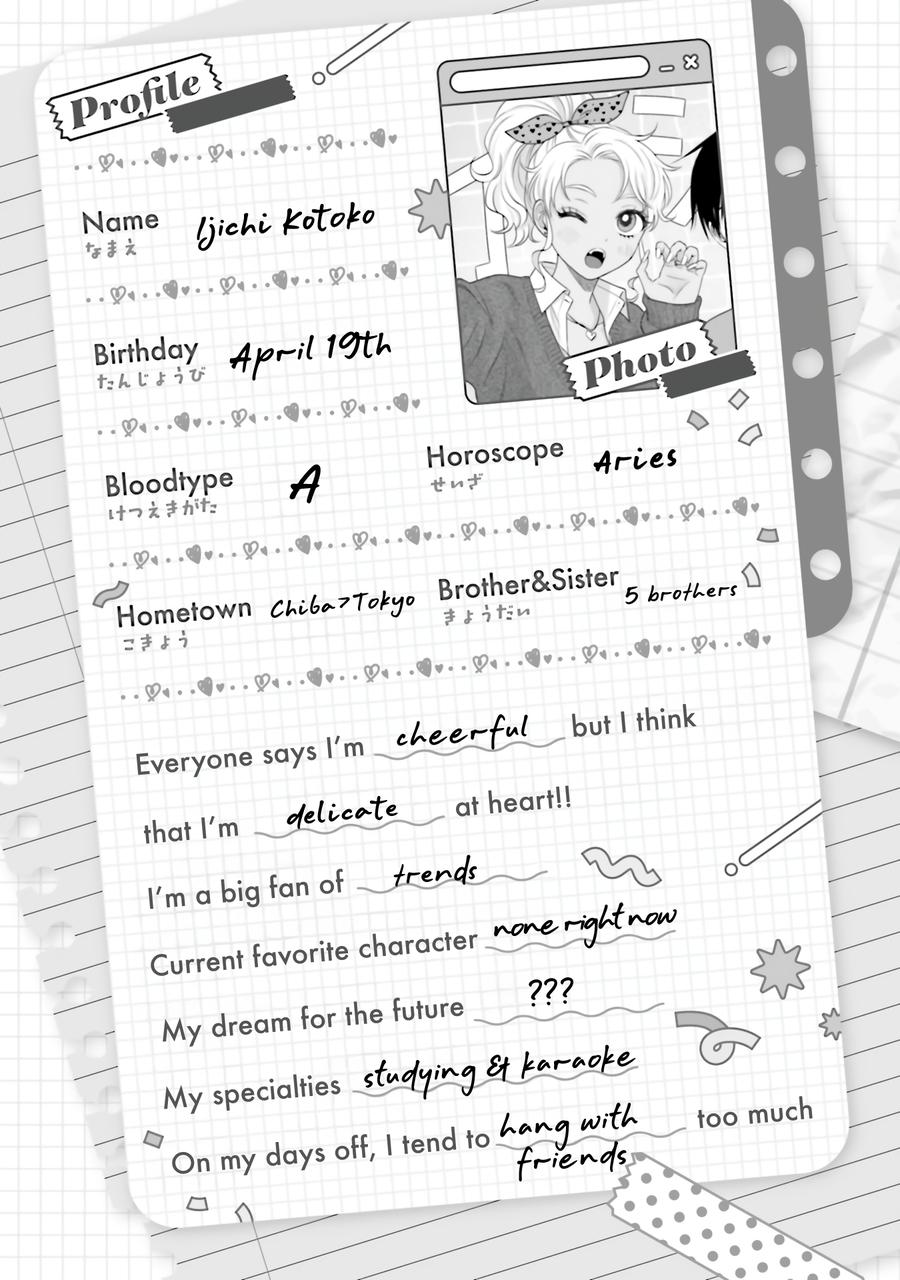 Profile
Name Ijichi Kotoko
なまえ
Birthday April 19th
たんじょうび
Photo
Bloodtype A
けつえきがた
Horoscope Aries
せいざ
Hometown Chiba>Tokyo
こきょう
Brother&Sister 5 brothers
きょうだい
Everyone says I'm cheerful but I think
that I'm delicate at heart!!
I'm a big fan of trends
Current favorite character none right now
My dream for the future ???
My specialties studying & karaoke
On my days off, I tend to hang with friends too much